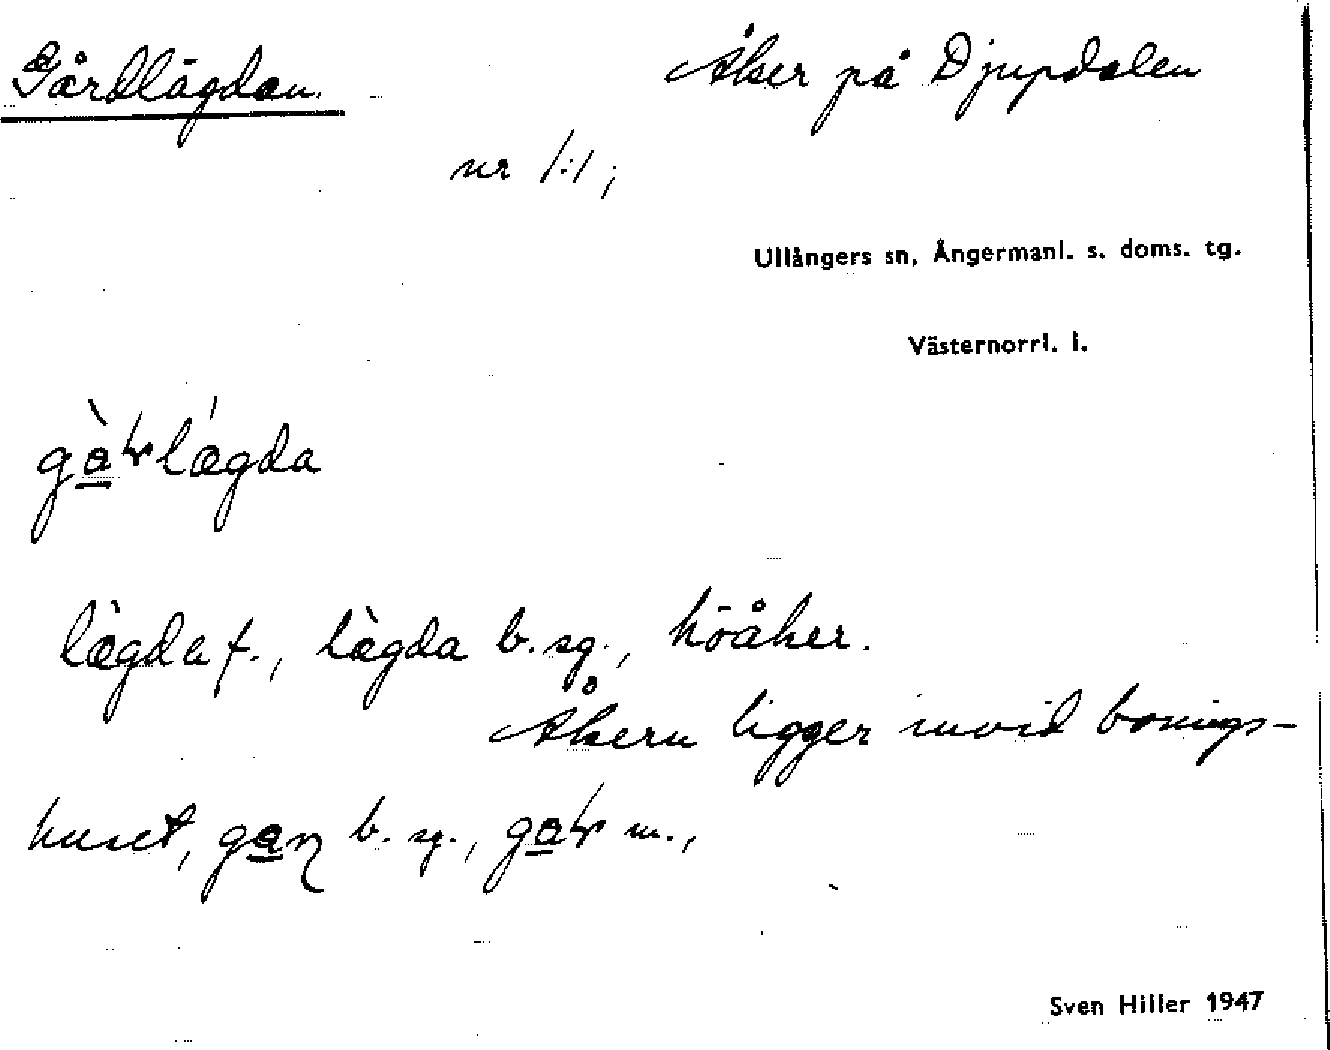 Gårdlägdan. Åker på Djupdalen
nr 1:1;
Ullångers sn, Ångermanl. s. doms. tg.
Västernorrl. l.
lægda f., lægda b. sg., höåker.
Åkern ligger invid bonings-
huset, b. sg., m.,
Sven Hiller 1947